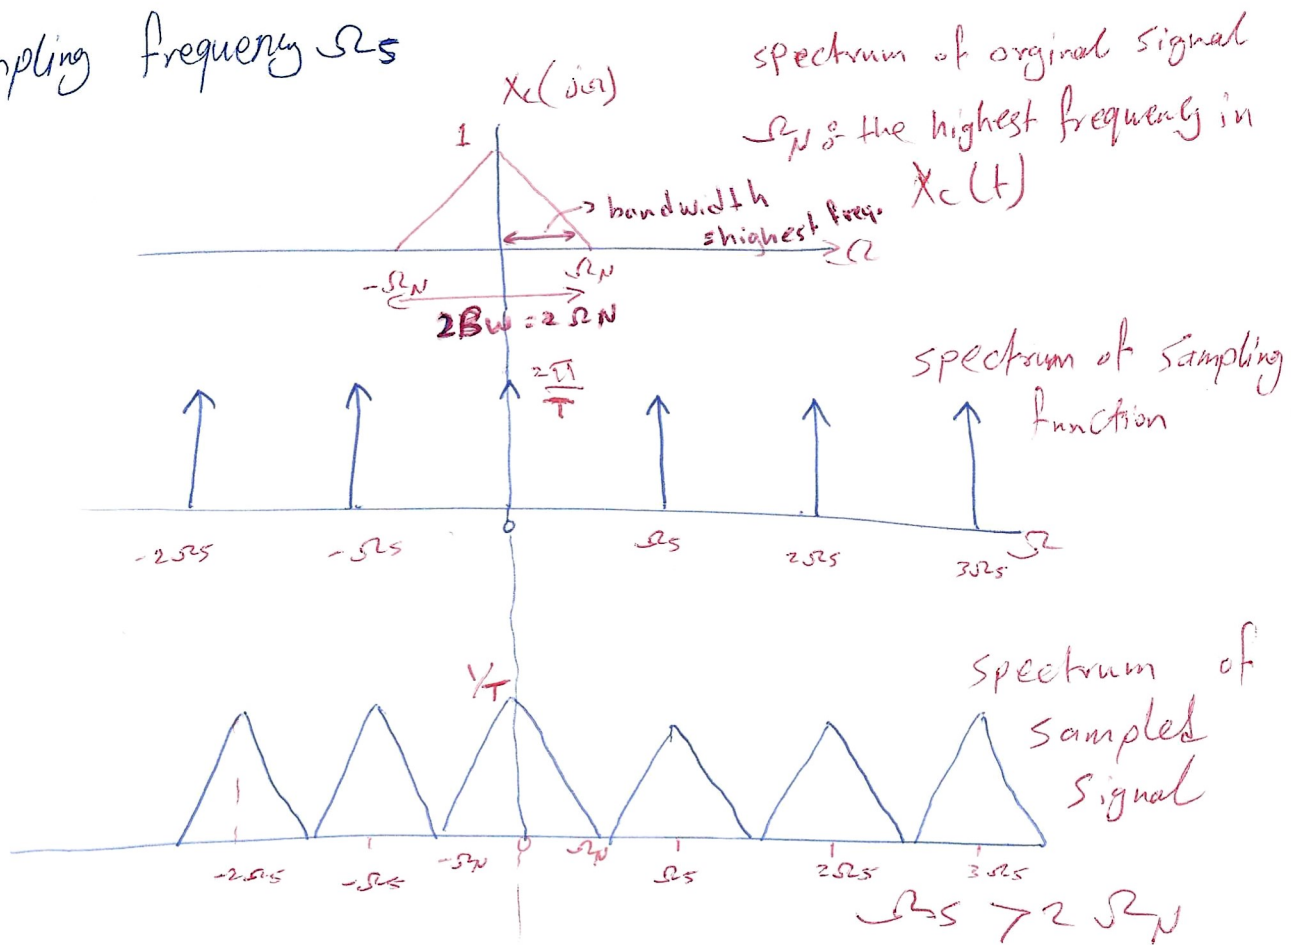 frequency Ωs
spectrum of orginal signal
Xc(jΩ)
1
ΩN : the highest frequency in
Xc(t)
bandwidth
=highest freq.
Ω
-ΩN
ΩN
2BW = 2ΩN
2π/T
spectrum of sampling
function
0
-2Ωs
-Ωs
Ωs
2Ωs
3Ωs
Ω
1/T
spectrum of
sampled
signal
-2Ωs
-Ωs
-ΩN
0
ΩN
Ωs
2Ωs
3Ωs
Ωs > 2ΩN